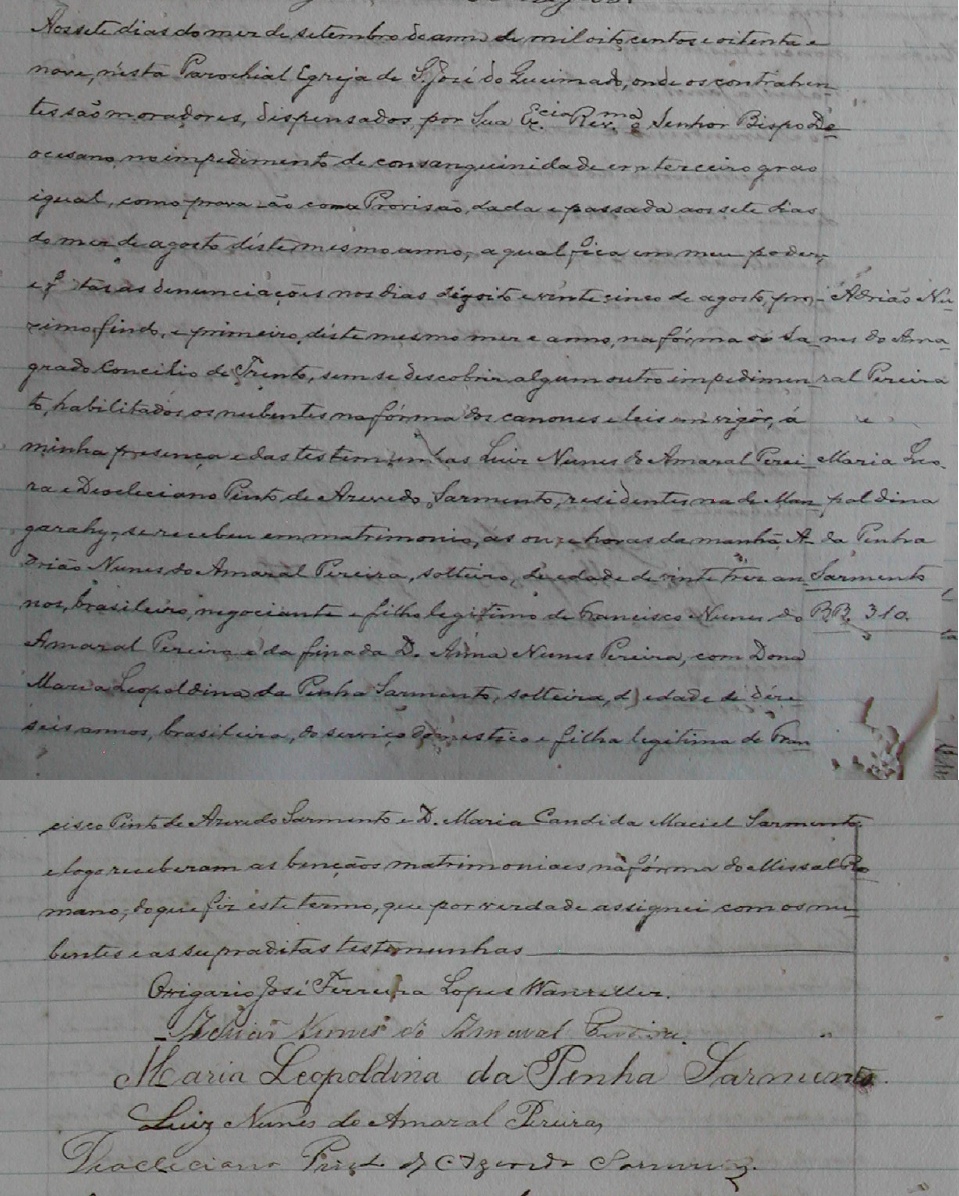 Aos sete dias do mez de setembro do anno de mil oito centos e oitenta e
nove, n'esta Parochial Egreja de S. José do Queimado, onde os contrahen-
tes são moradores, dispensados, por Sua Excia. Revma. e Senhor Bispo Di-
ocesano no impedimento de consanguinidade em terceiro grao
igual, como prova-rão com a Provisão, dada e passada aos sete dias
do mez de agosto d'este mesmo anno, a qual fica em meu poder,
e ftas as denunciações nos dias dezoito e vinte cinco de agosto, pro-
ximo findo, e primeiro d'este mesmo mez e anno, na fórma do Sa-
grado Concilio de Trento, sem se descobrir algum outro impedimen-
to, habilitados os nubentes na fórma dos canones e leis em vigôr, á
minha presença e das testemunhas Luiz Nunes do Amaral Perei-
ra e Deocleciano Pinto de Azevedo Sarmento, residentes na de Man-
garahy, se receberão em matrimonio, ás onze horas da manhã, A-
drião Nunes do Amaral Pereira, solteiro, de edade de vinte trez an-
nos, brasileiro, negociante e filho legitimo de Francisco Nunes do
Amaral Pereira e da finada D. Anna Nunes Pereira, com Dona
Maria Leopoldina da Penha Sarmento, solteira, d' edade de deze
seis annos, brasileira, do serviço domestico e filha legitima de Fran-
Adrião Nu-
nes do Ama-
ral Pereira
e
Maria Leo-
poldina
da Penha
Sarmento
BB. 310.
cisco Pinto de Azevedo Sarmento e D. Maria Candida Maciel Sarmento,
e logo receberam as bençãos matrimoniaes na fórma do Missal Ro-
mano, do que fiz êste termo, que por verdade assignei com os nu-
bentes e as supraditas testemunhas
O vigario José Ferreira Lopes Wanzeller.
Adrião Nunes do Amaral Pereira.
Maria Leopoldina da Penha Sarmento.
Luiz Nunes do Amaral Pereira
Deocleciano Pint de Azevedo Sarmento.